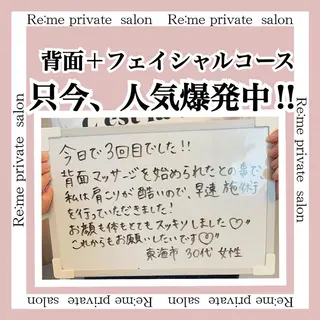 Re:me private salon   Re:me private salon
背面＋フェイシャルコース
只今、人気爆発中!!
今日で3回目でした!!
背面マッサージを始められたとの事で
私は肩こりが酷いので、早速 施術
を行っていただきました!
お顔も体もとてもスッキリしました♡"
これからもお願いしたいです♡"
東海市 30代 女性
Re:me private salon
Re:me private salon
Re:me private salon   Re:me private salon